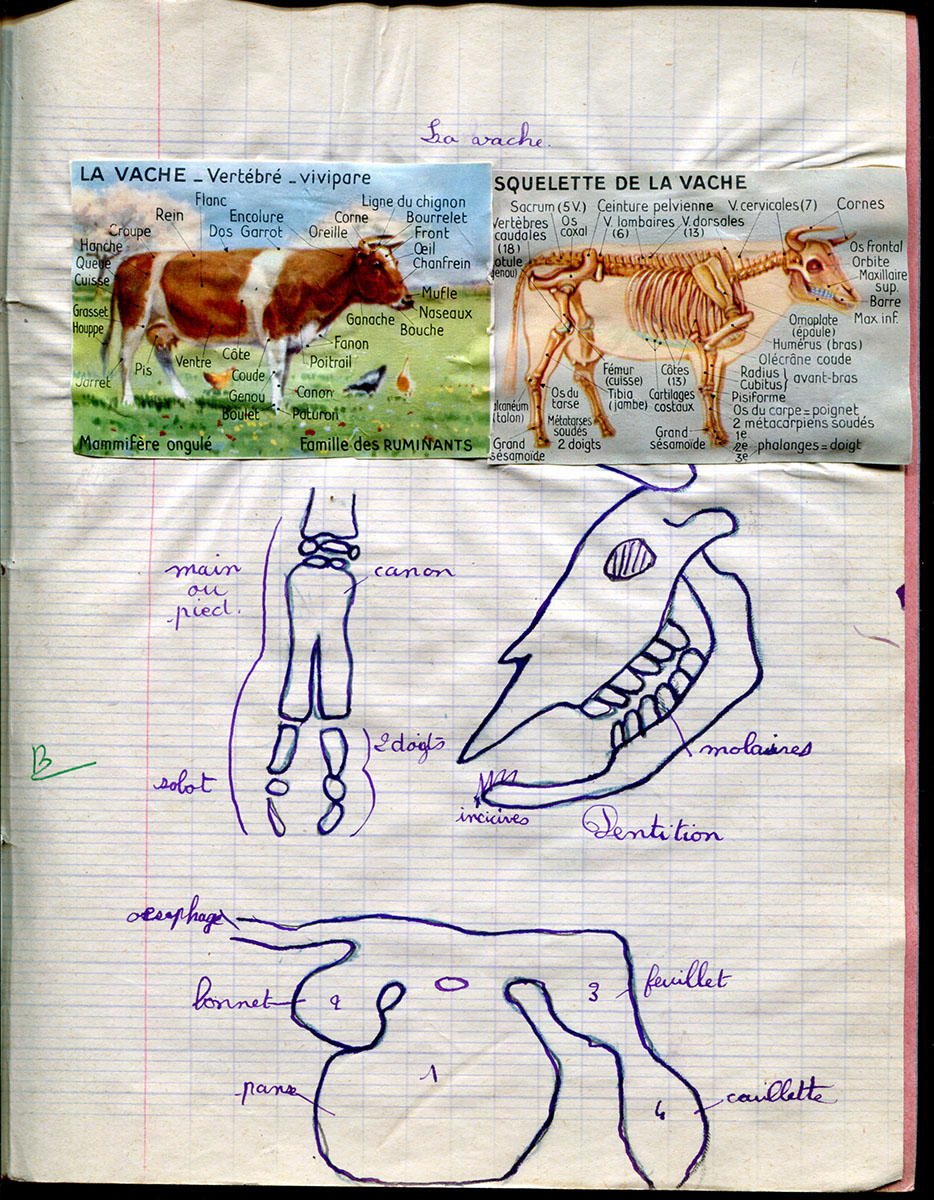 La vache.
LA VACHE _ Vertébré _ vivipare
Flanc
Rein
Croupe
Hanche
Queue
Cuisse
Grasset
Houppe
Jarret
Encolure
Dos Garrot
Ligne du chignon
Corne
Bourrelet
Oreille
Front
Œil
Chanfrein
Mufle
Naseaux
Ganache
Bouche
Fanon
Poitrail
Pis
Ventre
Côte
Coude
Genou
Canon
Boulet
Paturon
Mammifère ongulé
Famille des RUMINANTS
SQUELETTE DE LA VACHE
Sacrum (5 V.)
Ceinture pelvienne
V. cervicales (7)
Cornes
Vertèbres
caudales
(18)
Os
coxal
V. lombaires
(6)
V. dorsales
(13)
otule
genou)
Os frontal
Orbite
Maxillaire
sup.
Barre
Max. inf.
Omoplate
(épaule)
Humérus (bras)
Olécrâne coude
Radius
Cubitus
avant-bras
Pisiforme
Os du carpe = poignet
2 métacarpiens soudés
1e
2e
3e
phalanges = doigt
Fémur
(cuisse)
Tibia
(jambe)
Côtes
(13)
Cartilages
costaux
Os du
tarse
Métatarses
soudés
2 doigts
alcanéum
(talon)
Grand
sésamoïde
Grand
sésamoïde
main
ou
pied.
canon
2 doigts
sobot
molaires
incicives
Dentition
B
œsophage
bonnet
2
3
feuillet
1
panse
4
caillette